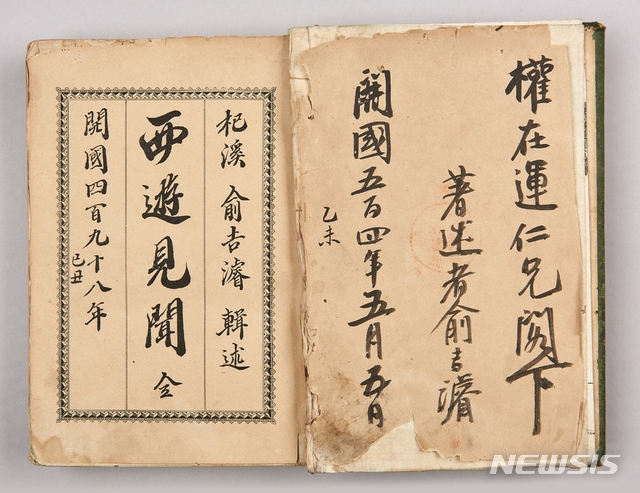 權在運仁兄閣下
著述者俞吉濬
開國五百四年五月五日
乙未
杞溪 俞吉濬 輯述
西遊見聞 全
開國四百九十八年
己丑
NEWSIS